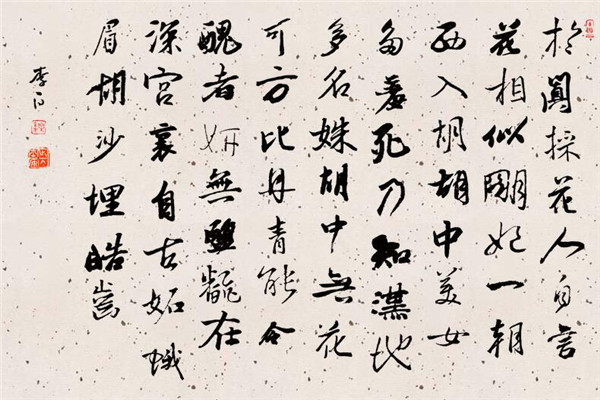 於闐採花人自言
花相似明妃一朝
西入胡胡中美女
多羞死乃知漢地
多名姝胡中無花
可方比丹青能令
醜者妍無鹽翻在
深宮裏自古妬蛾
眉胡沙埋皓齒
李白